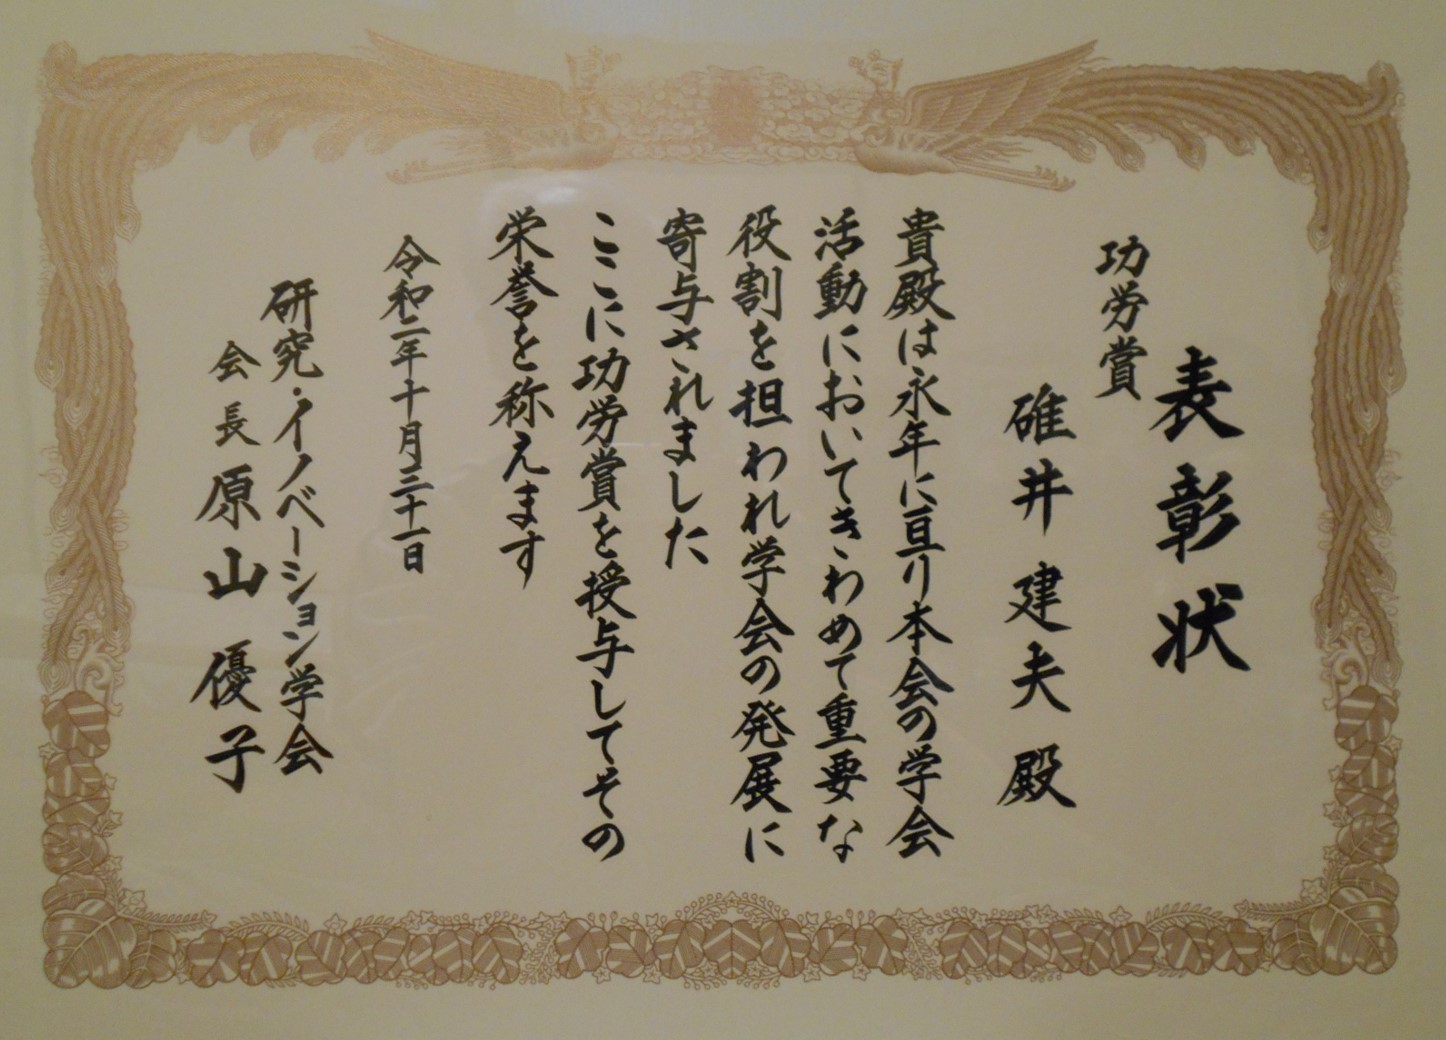 表彰状
功労賞
碓井建夫殿
貴殿は永年に亘り本会の学会
活動においてきわめて重要な
役割を担われ学会の発展に
寄与されました
ここに功労賞を授与してその
栄誉を称えます
令和二年十月三十一日
研究・イノベーション学会
会長原山優子